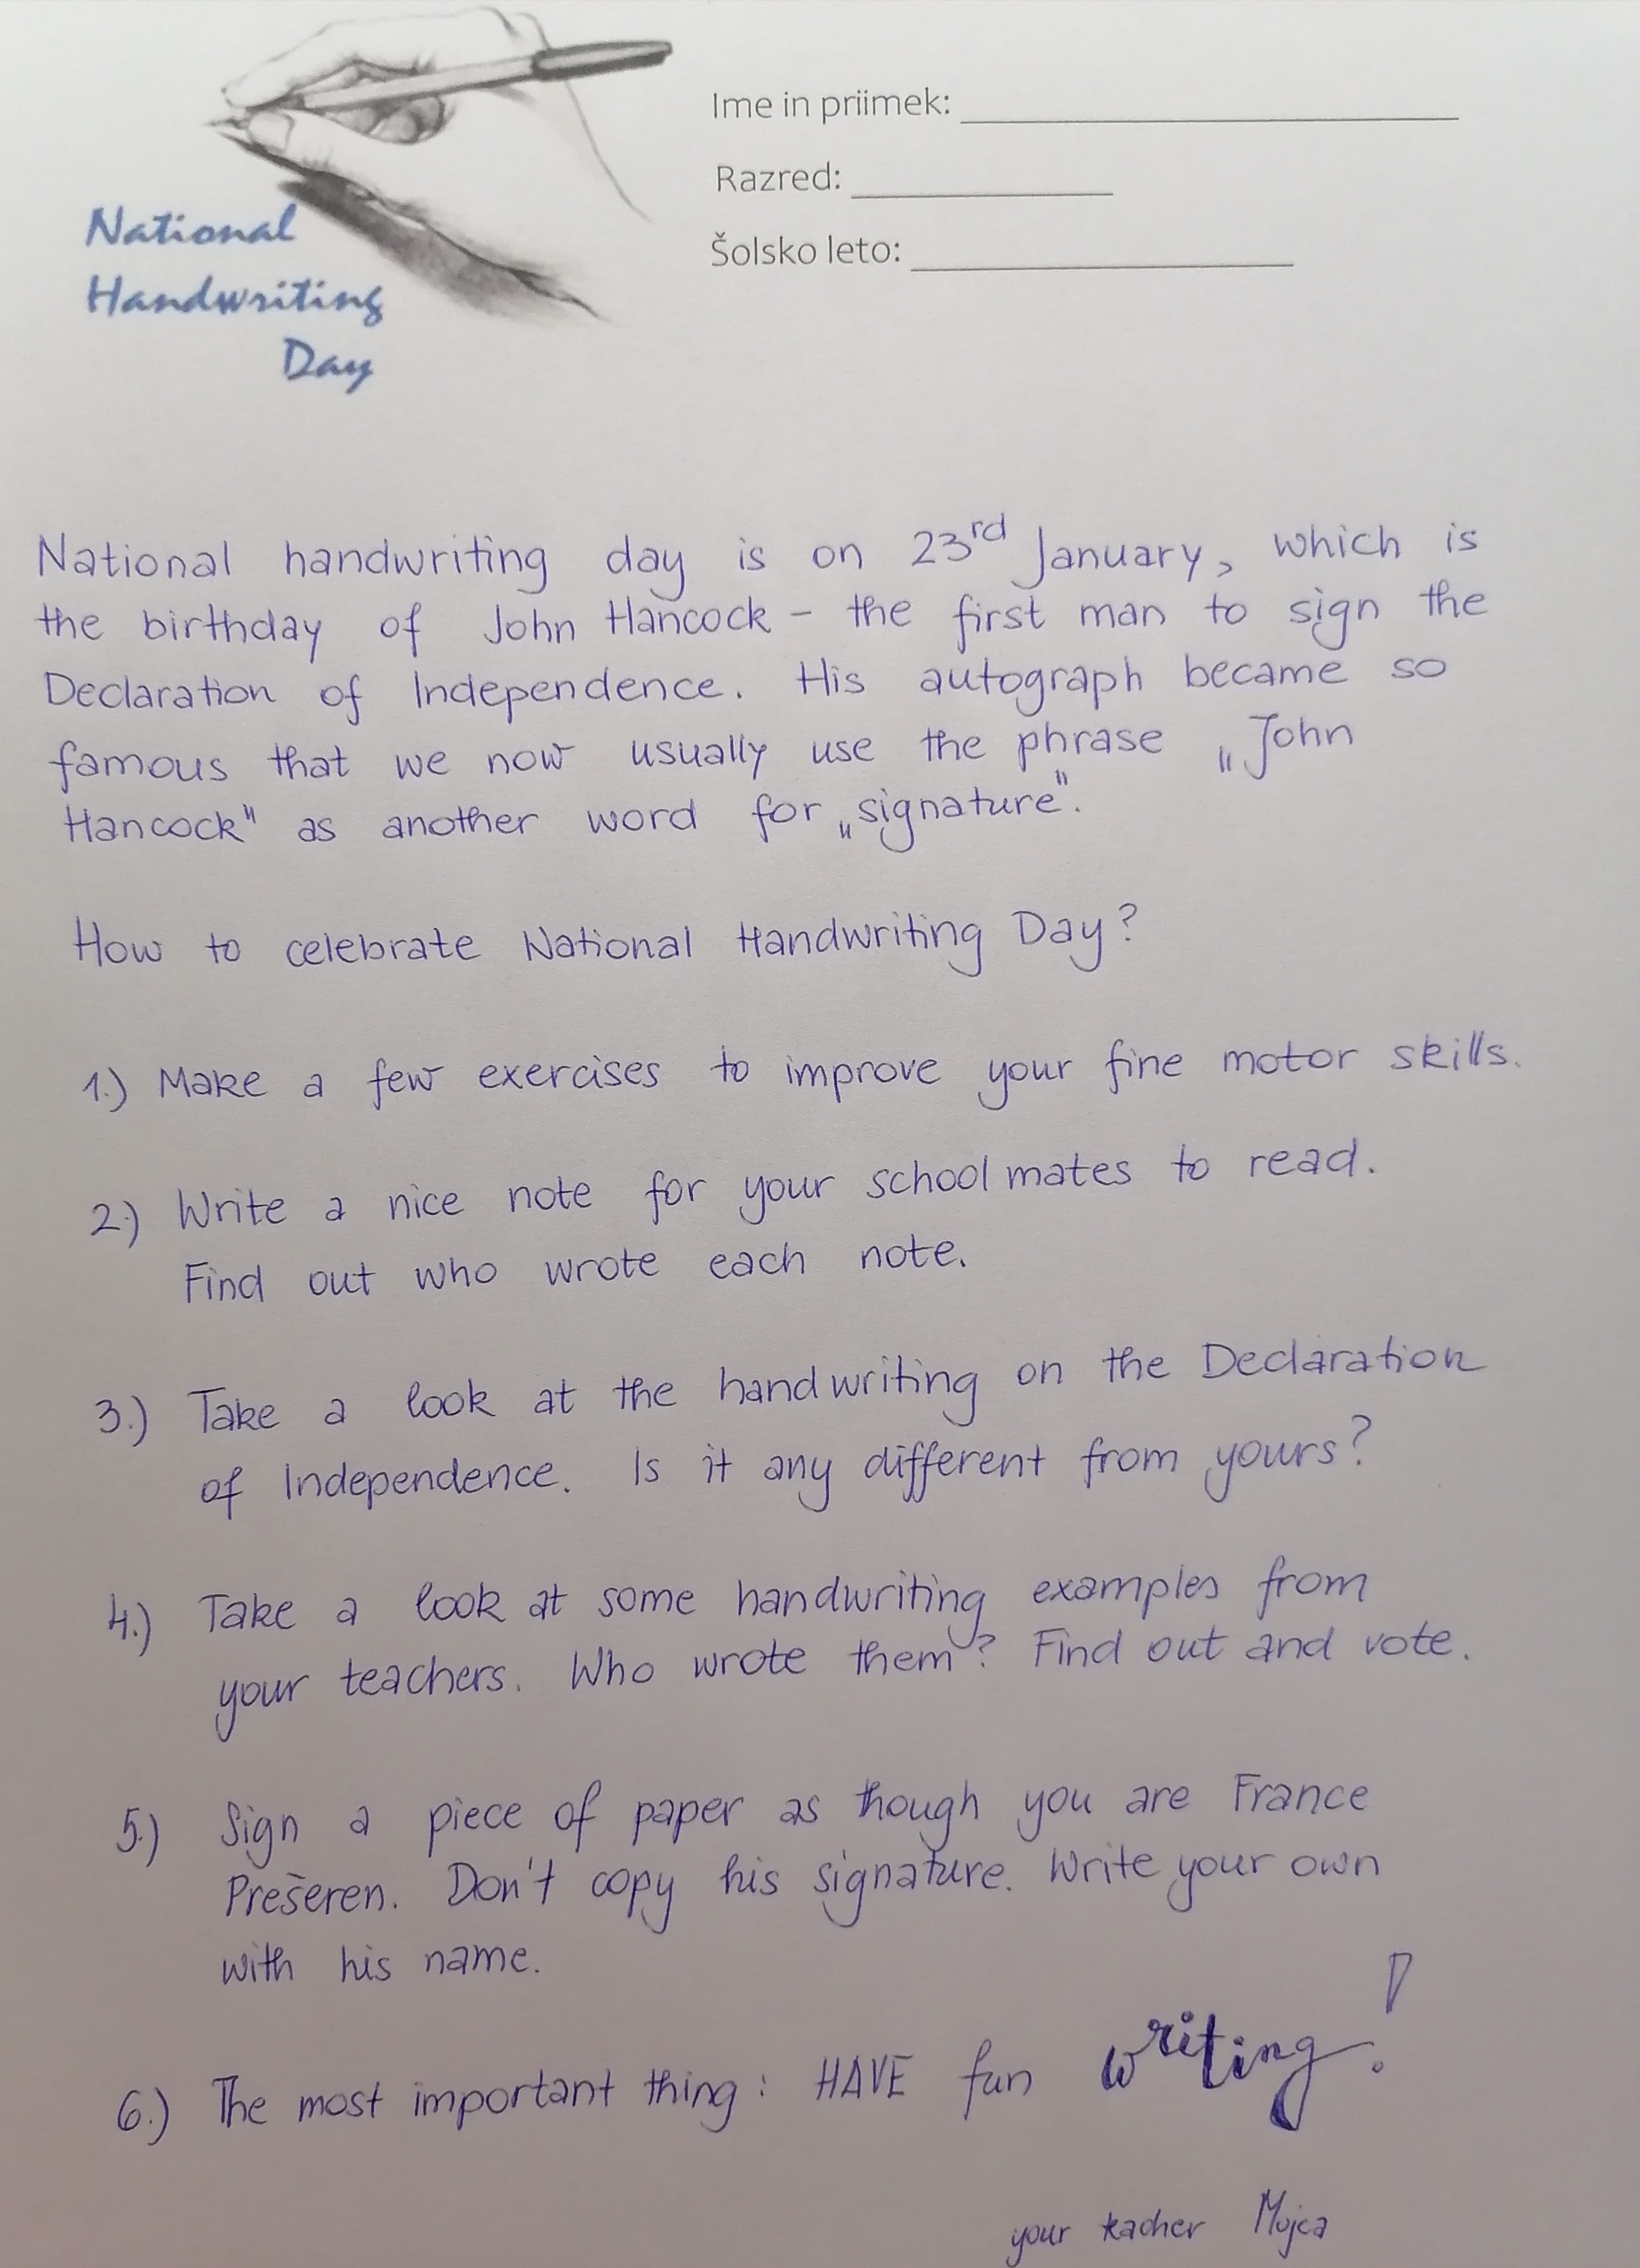 National
Handwriting
Day
Ime in priimek:
Razred:
Šolsko leto:
National handwriting day is on 23rd January, which is
the birthday of John Hancock - the first man to sign the
Declaration of Independence. His autograph became so
famous that we now usually use the phrase „John
Hancock" as another word for „signature".
How to celebrate National Handwriting Day?
1.) Make a few exercises to improve your fine motor skills.
2.) Write a nice note for your schoolmates to read.
Find out who wrote each note.
3.) Take a look at the handwriting on the Declaration
of Independence. Is it any different from yours?
4.) Take a look at some handwriting examples from
your teachers. Who wrote them? Find out and vote.
5.) Sign a piece of paper as though you are France
Prešeren. Don't copy his signature. Write your own
with his name.
6.) The most important thing: HAVE fun writing!
your teacher Mojca